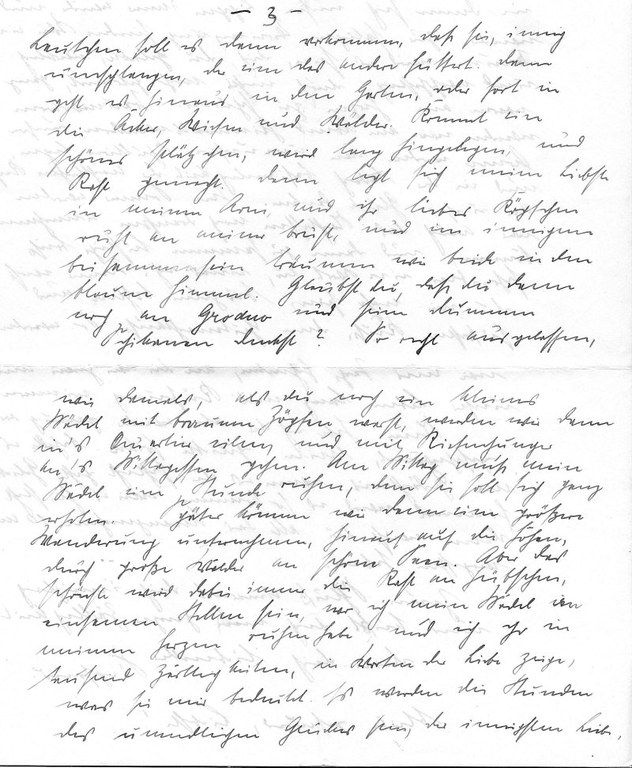 – 3 –
Leutchen soll es dann vorkommen, daß sie, innig
umschlungen, der eine das andere füttert. Dann
geht es hinaus in den Garten, oder fort in
die Äcker, Wiesen und Wälder. Kommt ein
schönes Plätzchen, wird lang hingelegen, und
Rast gemacht. Dann legt sich meine Liebste
in meinen Arm, und ihr liebes Köpfchen
ruht an meiner Brust, und im innigen
beisammen sein träumen wir beide in den
blauen Himmel. Glaubst du, daß du dann
noch an Grodno und seine dummen
Schikanen denkst? So recht ausgelassen,
wie damals, als du noch ein kleines
Mädel mit braunen Zöpfen warst, werden wir dann
in's Quartier eilen, und mit Riesenhunger
an's Mittagessen gehen. Am Mittag muß mein
Mädel eine Stunde ruhen, denn sie soll sich ganz
erholen. Später können wir dann eine größere
Wanderung unternehmen, hinauf auf die Höhen,
durch große Wälder an schöne Seen. Aber das
schönste wird dabei immer die Rast an hübschen,
einsamen Stellen sein, wo ich mein Mädel an
meinem Herzen ruhen habe und ich ihr in
tausend Zärtlichkeiten, in Worten der Liebe zeige,
was sie mir bedeutet. Es werden die Stunden
des unendlichen Glückes sein, der innigsten Liebe,